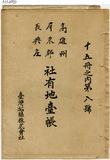 十五冊之内第八號
高雄州
屏東郡
長興庄
社有地臺帳
臺灣製糖株式會社